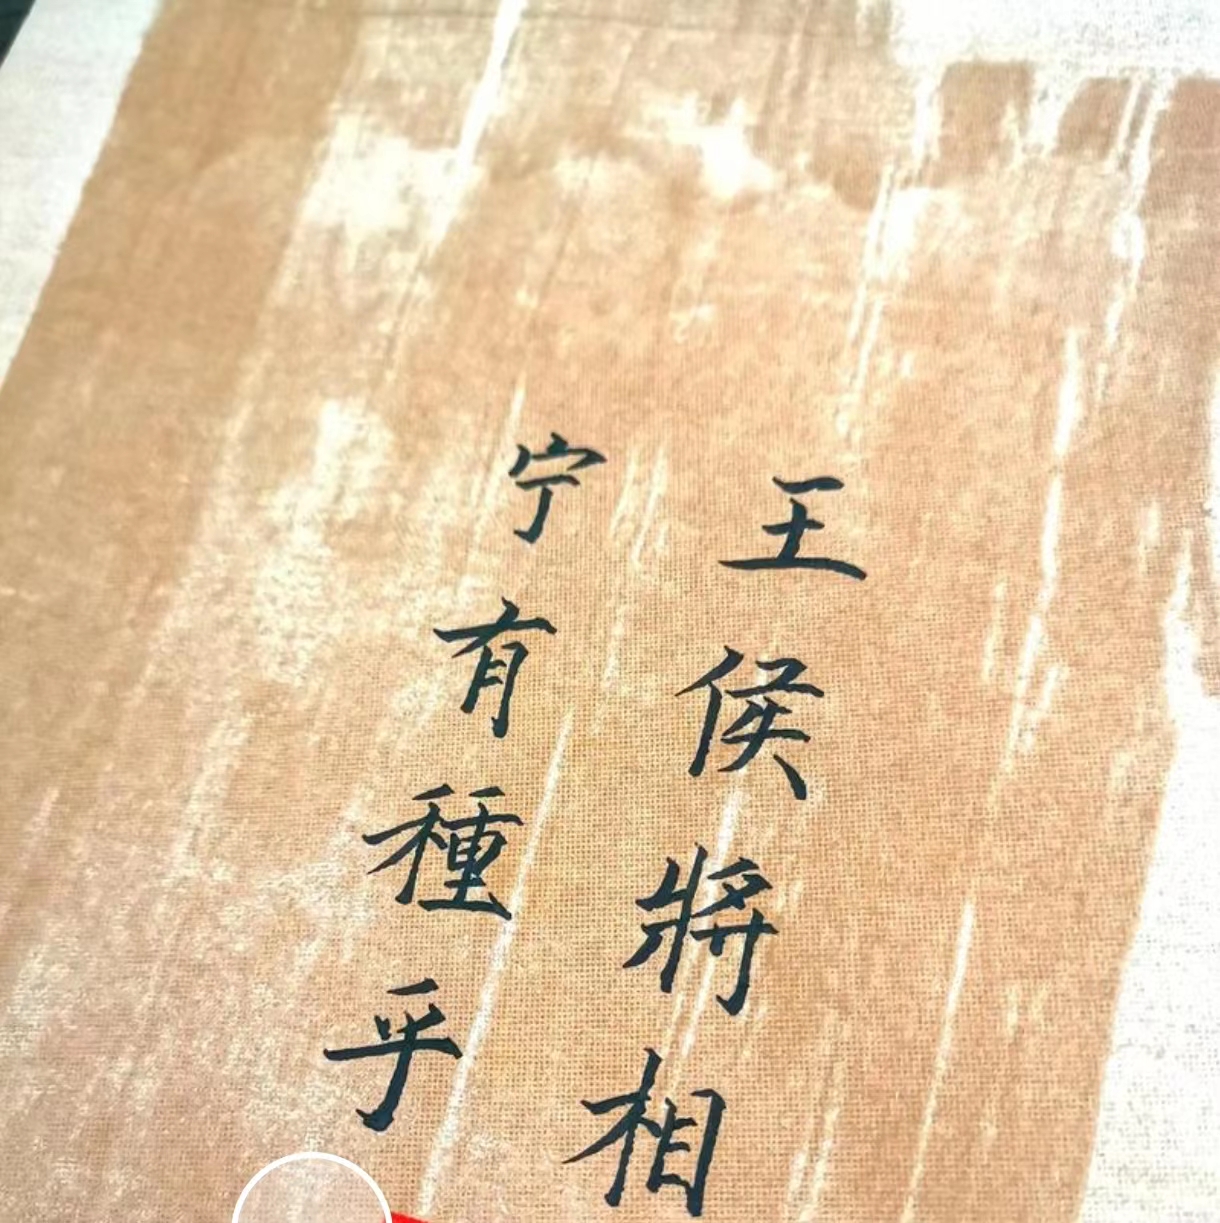 王侯將相
宁有種乎